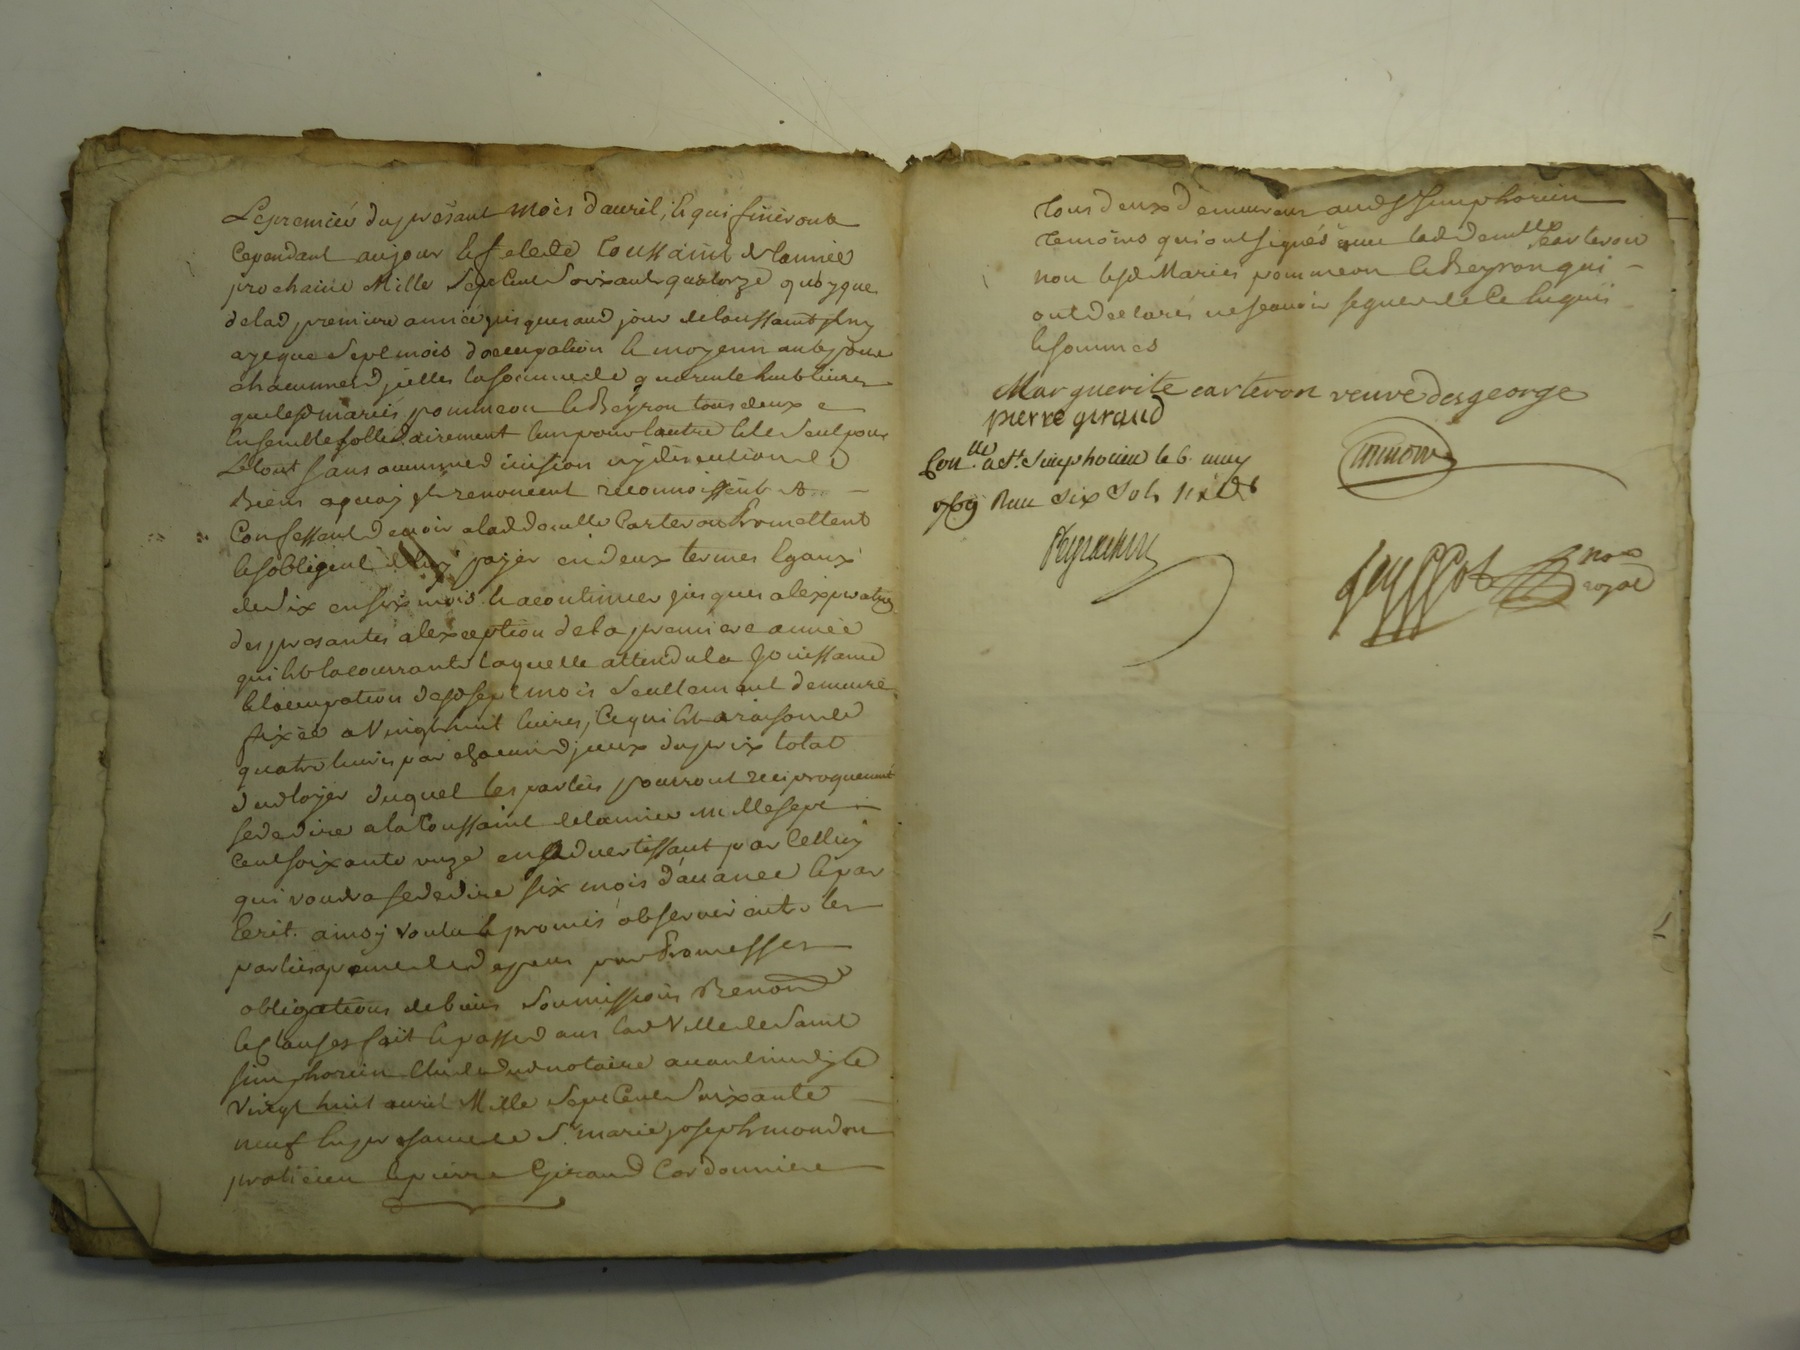 Lepremier du présant mois d'auril, & qui finiront
Cependant aujour & feste de Toussaint de l'année
prochaine Mille Sept Cent Soixante quatorze quoyque
de lad premiere année jusques aud jour de toussaint il ny
aye que Sept mois d'occupation & moyennant pour
chacunne d'jcelles la somme de quarente huit livres
que lesd mariés pommeon & Beyron tous deux
Ensemble sollidairement lun pour lautre & le Seul pour
Le tout sans aucunne division ny discution de
Biens aquoy jls renoncent reconnoissent &
Confessent devoir alad dlle Carteron Promettent
& sobligent de luy payer en deux termes Egaux
de Six en six mois & a continuer jusques alexpiration
des presantes alexception de la premiere année
qui est la courrante laquelle attendu la jouissance
& loccupation desd sept mois Seullement demeure
fixée a Vingt huit livres, ce qui est a raison de
quatre livres par chacun d'jceux du prix total
dud loyer duquel les parties pourront reciproquement
se dedire ala Toussaint de lannée mille sept
Cent soixante onze en sadvertissant par Celluy
qui voudra se dedire six mois d'avance & par
Ecrit. ainsy voulu & promis observer entre les
parties a peine de d par Promesses
obligations de biens Soumissions Renon
& Clauses fait & passé dans lad Ville de Saint
Simphorien Etude dud notaire avant midy le
Vingt huit auril Mille Sept Cent Soixante
neuf En presance de Sr. marie joseph mondon
praticien & pierre Giraud Cordonnier
tous deux demeurans aud St Simphorien
temoins qui ont signés avec lad demlle Carteron
non lesd Mariés pommeon & Beyron qui
ont declarés ne scavoir signer de ce Enquis
& sommés
Marguerite carteron veuve desgeorge
pierre giraud
Con.lle a St. Simphorien le 6. may
1769 Reçu Six Sols
nore
royal